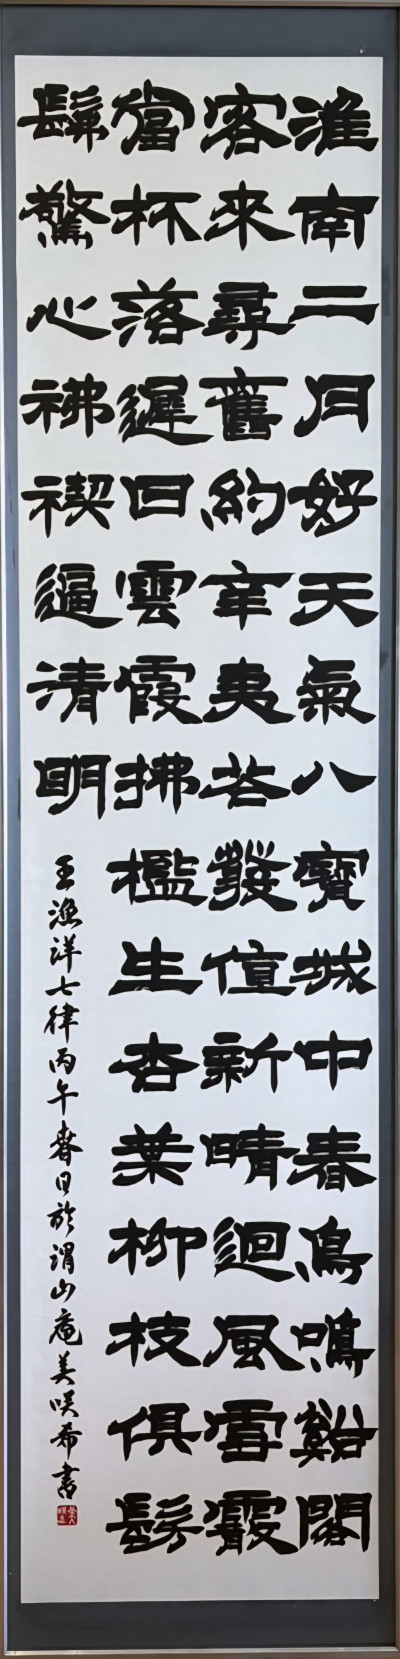 淮南二月好天氣八寶城中春鳥鳴谿閣
客來尋舊約辛夷花發值新晴迴風雪霰
當杯落遲日雲霞拂檻生杏葉柳枝俱髣
髴驚心祓禊逼清明
王漁洋七律丙午春日於渭山庵美咲希書